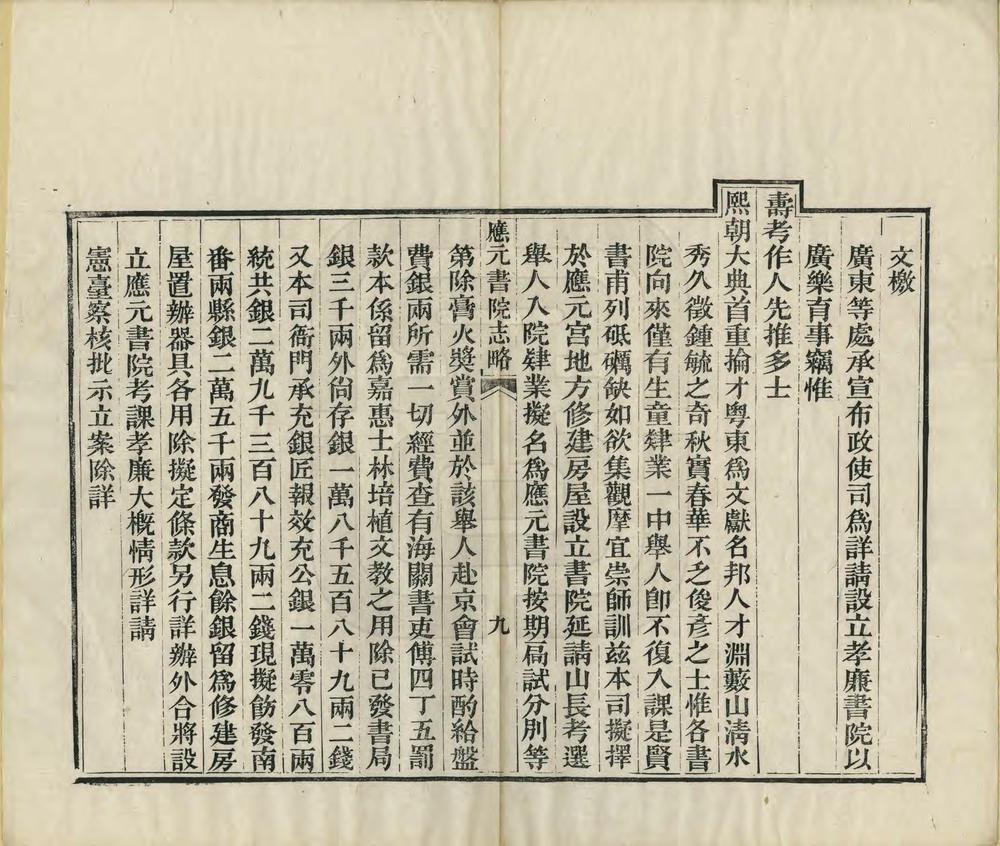 文檄
廣東等處承宣布政使司爲詳請設立孝廉書院以
廣樂育事竊惟
壽考作人先推多士
熙朝大典首重掄才粵東爲文獻名邦人才淵藪山淸水
秀久徵鍾毓之奇秋實春華不乏俊彥之士惟各書
院向來僅有生童肄業一中舉人卽不復入課是賢
書甫列砥礪缺如欲集觀摩宜崇師訓茲本司擬擇
於應元宮地方修建房屋設立書院延請山長考選
舉人入院肄業擬名爲應元書院按期扃試分別等
應元書院志略
九
第除膏火獎賞外並於該舉人赴京會試時酌給盤
費銀兩所需一切經費查有海關書吏傅四丁五罰
款本係留爲嘉惠士林培植文教之用除已發書局
銀三千兩外尙存銀一萬八千五百八十九兩二錢
又本司衙門承充銀匠報效充公銀一萬零八百兩
統共銀二萬九千三百八十九兩二錢現擬飭發南
番兩縣銀二萬五千兩發商生息餘銀留爲修建房
屋置辦器具各用除擬定條款另行詳辦外合將設
立應元書院考課孝廉大概情形詳請
憲臺察核批示立案除詳